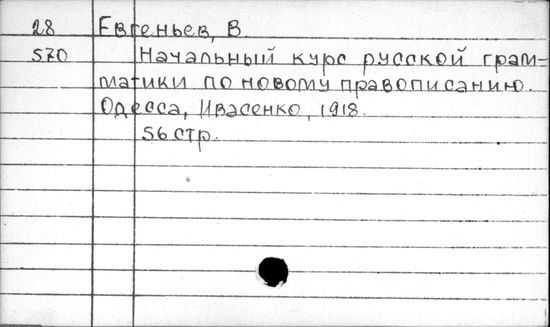 28 Евгеньев, В
570 Начальный курс русской грам-
матики по новому правописанию.
Одесса, Ивасенко, 1918.
56 стр.